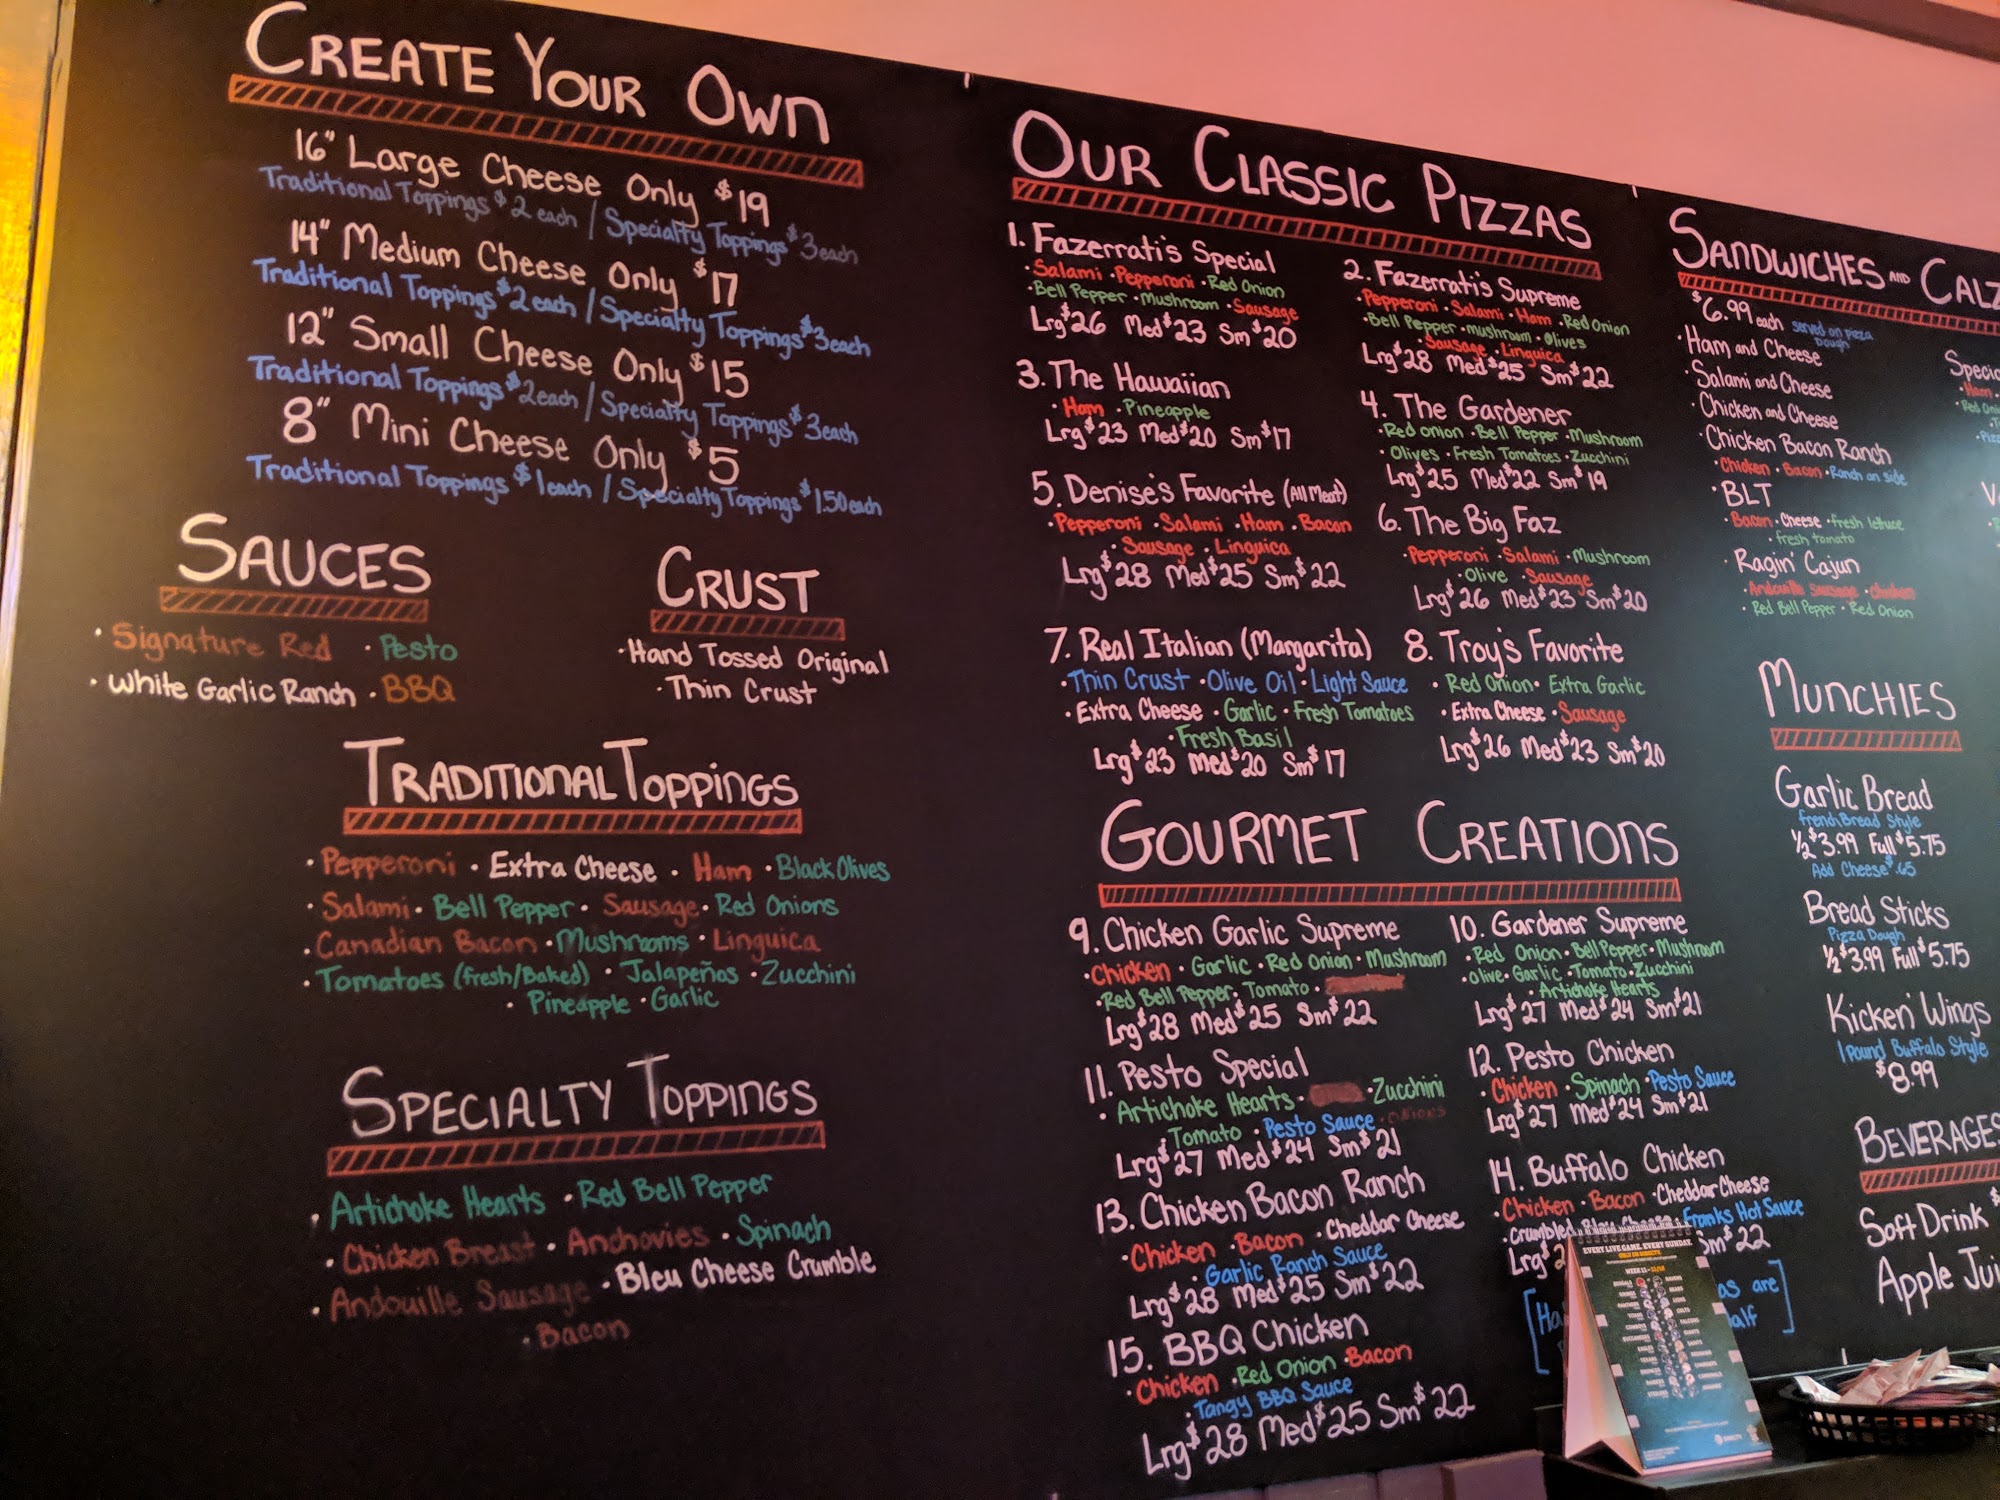 CREATE YOUR OWN
16" Large Cheese Only $19
Traditional Toppings $2 each / Specialty Toppings $3 each
14" Medium Cheese Only $17
Traditional Toppings $2 each / Specialty Toppings $3 each
12" Small Cheese Only $15
Traditional Toppings $2 each / Specialty Toppings $3 each
8" Mini Cheese Only $5
Traditional Toppings $1 each / Specialty Toppings $1.50 each
SAUCES
· Signature Red · Pesto
· White Garlic Ranch · BBQ
CRUST
· Hand Tossed Original
· Thin Crust
TRADITIONAL TOPPINGS
· Pepperoni · Extra Cheese · Ham · Black Olives
· Salami · Bell Pepper · Sausage · Red Onions
· Canadian Bacon · Mushrooms · Linguica
· Tomatoes (fresh/Baked) · Jalapeños · Zucchini
· Pineapple · Garlic
SPECIALTY TOPPINGS
· Artichoke Hearts · Red Bell Pepper
· Chicken Breast · Anchovies · Spinach
· Andouille Sausage · Bleu Cheese Crumble
· Bacon
OUR CLASSIC PIZZAS
1. Fazerrati's Special
· Salami · Pepperoni · Red Onion
· Bell Pepper · Mushroom · Sausage
Lrg $26 Med $23 Sm $20
2. Fazerrati's Supreme
· Pepperoni · Salami · Ham · Red Onion
· Bell Pepper · mushroom · Olives
· Sausage · Linguica
Lrg $28 Med $25 Sm $22
3. The Hawaiian
· Ham · Pineapple
Lrg $23 Med $20 Sm $17
4. The Gardener
· Red onion · Bell Pepper · Mushroom
· Olives · Fresh Tomatoes · Zucchini
Lrg $25 Med $22 Sm $19
5. Denise's Favorite (All Meat)
· Pepperoni · Salami · Ham · Bacon
· Sausage · Linguica
Lrg $28 Med $25 Sm $22
6. The Big Faz
· Pepperoni · Salami · Mushroom
· Olive · Sausage
Lrg $26 Med $23 Sm $20
7. Real Italian (Margarita)
· Thin Crust · Olive Oil · Light Sauce
· Extra Cheese · Garlic · Fresh Tomatoes
· Fresh Basil
Lrg $23 Med $20 Sm $17
8. Troy's Favorite
· Red Onion · Extra Garlic
· Extra Cheese · Sausage
Lrg $26 Med $23 Sm $20
GOURMET CREATIONS
9. Chicken Garlic Supreme
· Chicken · Garlic · Red Onion · Mushroom
· Red Bell Pepper · Tomato ·
Lrg $28 Med $25 Sm $22
10. Gardener Supreme
· Red Onion · Bell Pepper · Mushroom
· Olive · Garlic · Tomato · Zucchini
· Artichoke Hearts
Lrg $27 Med $24 Sm $21
11. Pesto Special
· Artichoke Hearts · · Zucchini
· Tomato · Pesto Sauce · onions
Lrg $27 Med $24 Sm $21
12. Pesto Chicken
· Chicken · Spinach · Pesto Sauce
Lrg $27 Med $24 Sm $21
13. Chicken Bacon Ranch
· Chicken · Bacon · Cheddar Cheese
· Garlic Ranch Sauce
Lrg $28 Med $25 Sm $22
14. Buffalo Chicken
· Chicken · Bacon · Cheddar Cheese
· Crumbled Franks Hot Sauce
Lrg $2 Sm $22
15. BBQ Chicken
· Chicken · Red Onion · Bacon
· Tangy BBQ Sauce
Lrg $28 Med $25 Sm $22
as are
alf
EVERY LIVE GAME. EVERY SUNDAY.
SANDWICHES AND CALZ
$6.99 each served on pizza
Dough
· Ham and Cheese
· Salami and Cheese
· Chicken and Cheese
· Chicken Bacon Ranch
· Chicken · Bacon · Ranch on side
· BLT
· Bacon · Cheese · fresh lettuce
· fresh tomato
· Ragin' Cajun
· Andouille Sausage · Chicken
· Red Bell Pepper · Red Onion
MUNCHIES
Garlic Bread
french Bread Style
1/2 $3.99 Full $5.75
Add Cheese $.65
Bread Sticks
Pizza Dough
1/2 $3.99 Full $5.75
Kicken' Wings
1 pound Buffalo Style
$8.99
BEVERAGES
Soft Drink $
Apple Jui